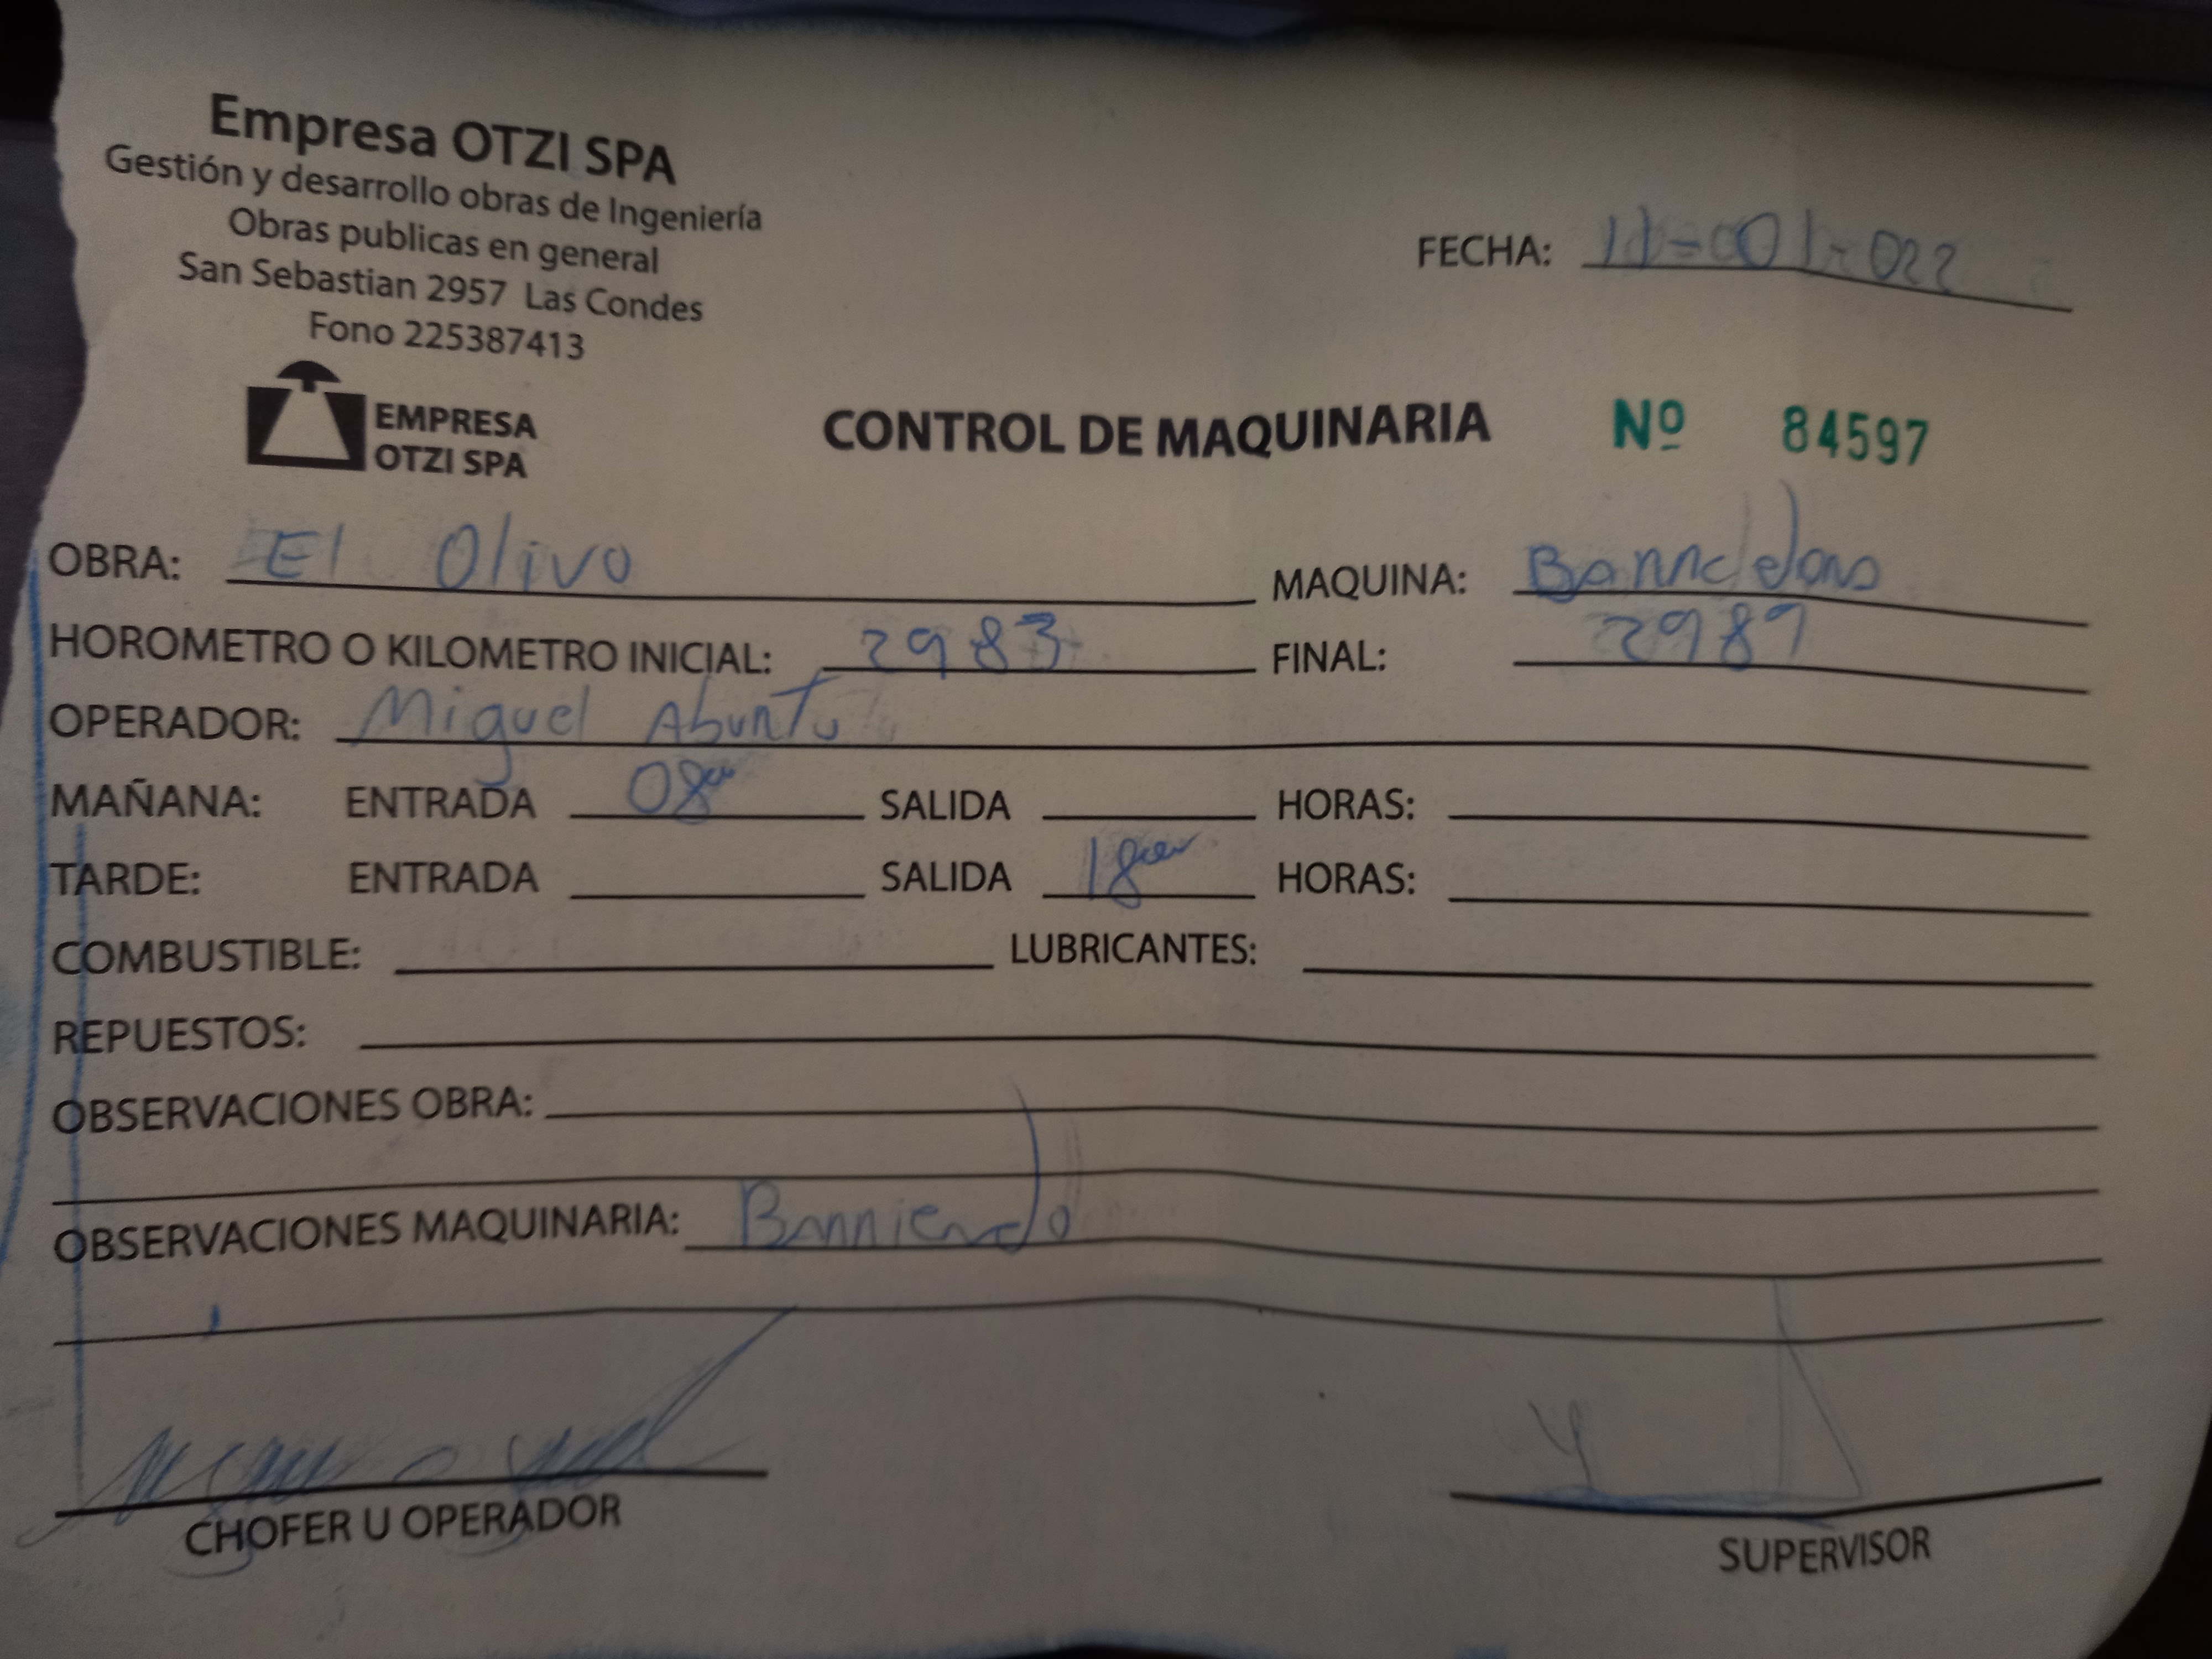 Empresa OTZI SPA
Gestión y desarrollo obras de Ingeniería
Obras publicas en general
San Sebastian 2957 Las Condes
Fono 225387413
FECHA:
EMPRESA
OTZI SPA
CONTROL DE MAQUINARIA Nº 84597
OBRA: El Olivo MAQUINA:
HOROMETRO O KILOMETRO INICIAL: 2983 FINAL: 2989
OPERADOR: Miguel
MAÑANA: ENTRADA 08 SALIDA HORAS:
TARDE: ENTRADA SALIDA 18 HORAS:
COMBUSTIBLE: LUBRICANTES:
REPUESTOS:
OBSERVACIONES OBRA:
OBSERVACIONES MAQUINARIA: Barriendo
CHOFER U OPERADOR SUPERVISOR